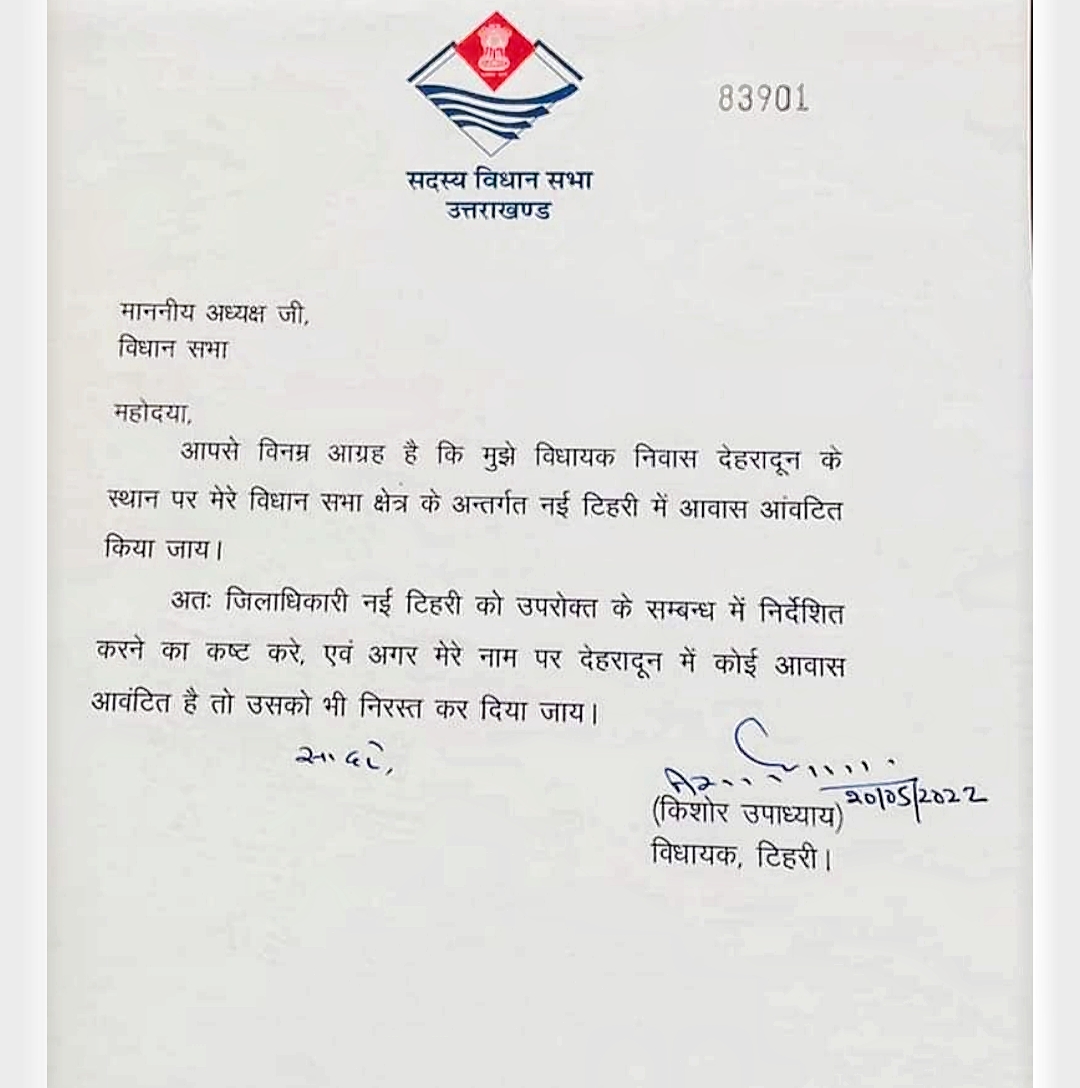 83901
सदस्य विधान सभा
उत्तराखण्ड
माननीय अध्यक्ष जी,
विधान सभा
महोदया,
आपसे विनम्र आग्रह है कि मुझे विधायक निवास देहरादून के
स्थान पर मेरे विधान सभा क्षेत्र के अन्तर्गत नई टिहरी में आवास आंवटित
किया जाय।
अतः जिलाधिकारी नई टिहरी को उपरोक्त के सम्बन्ध में निर्देशित
करने का कष्ट करे, एवं अगर मेरे नाम पर देहरादून में कोई आवास
आवंटित है तो उसको भी निरस्त कर दिया जाय।
20/05/2022
(किशोर उपाध्याय)
विधायक, टिहरी।